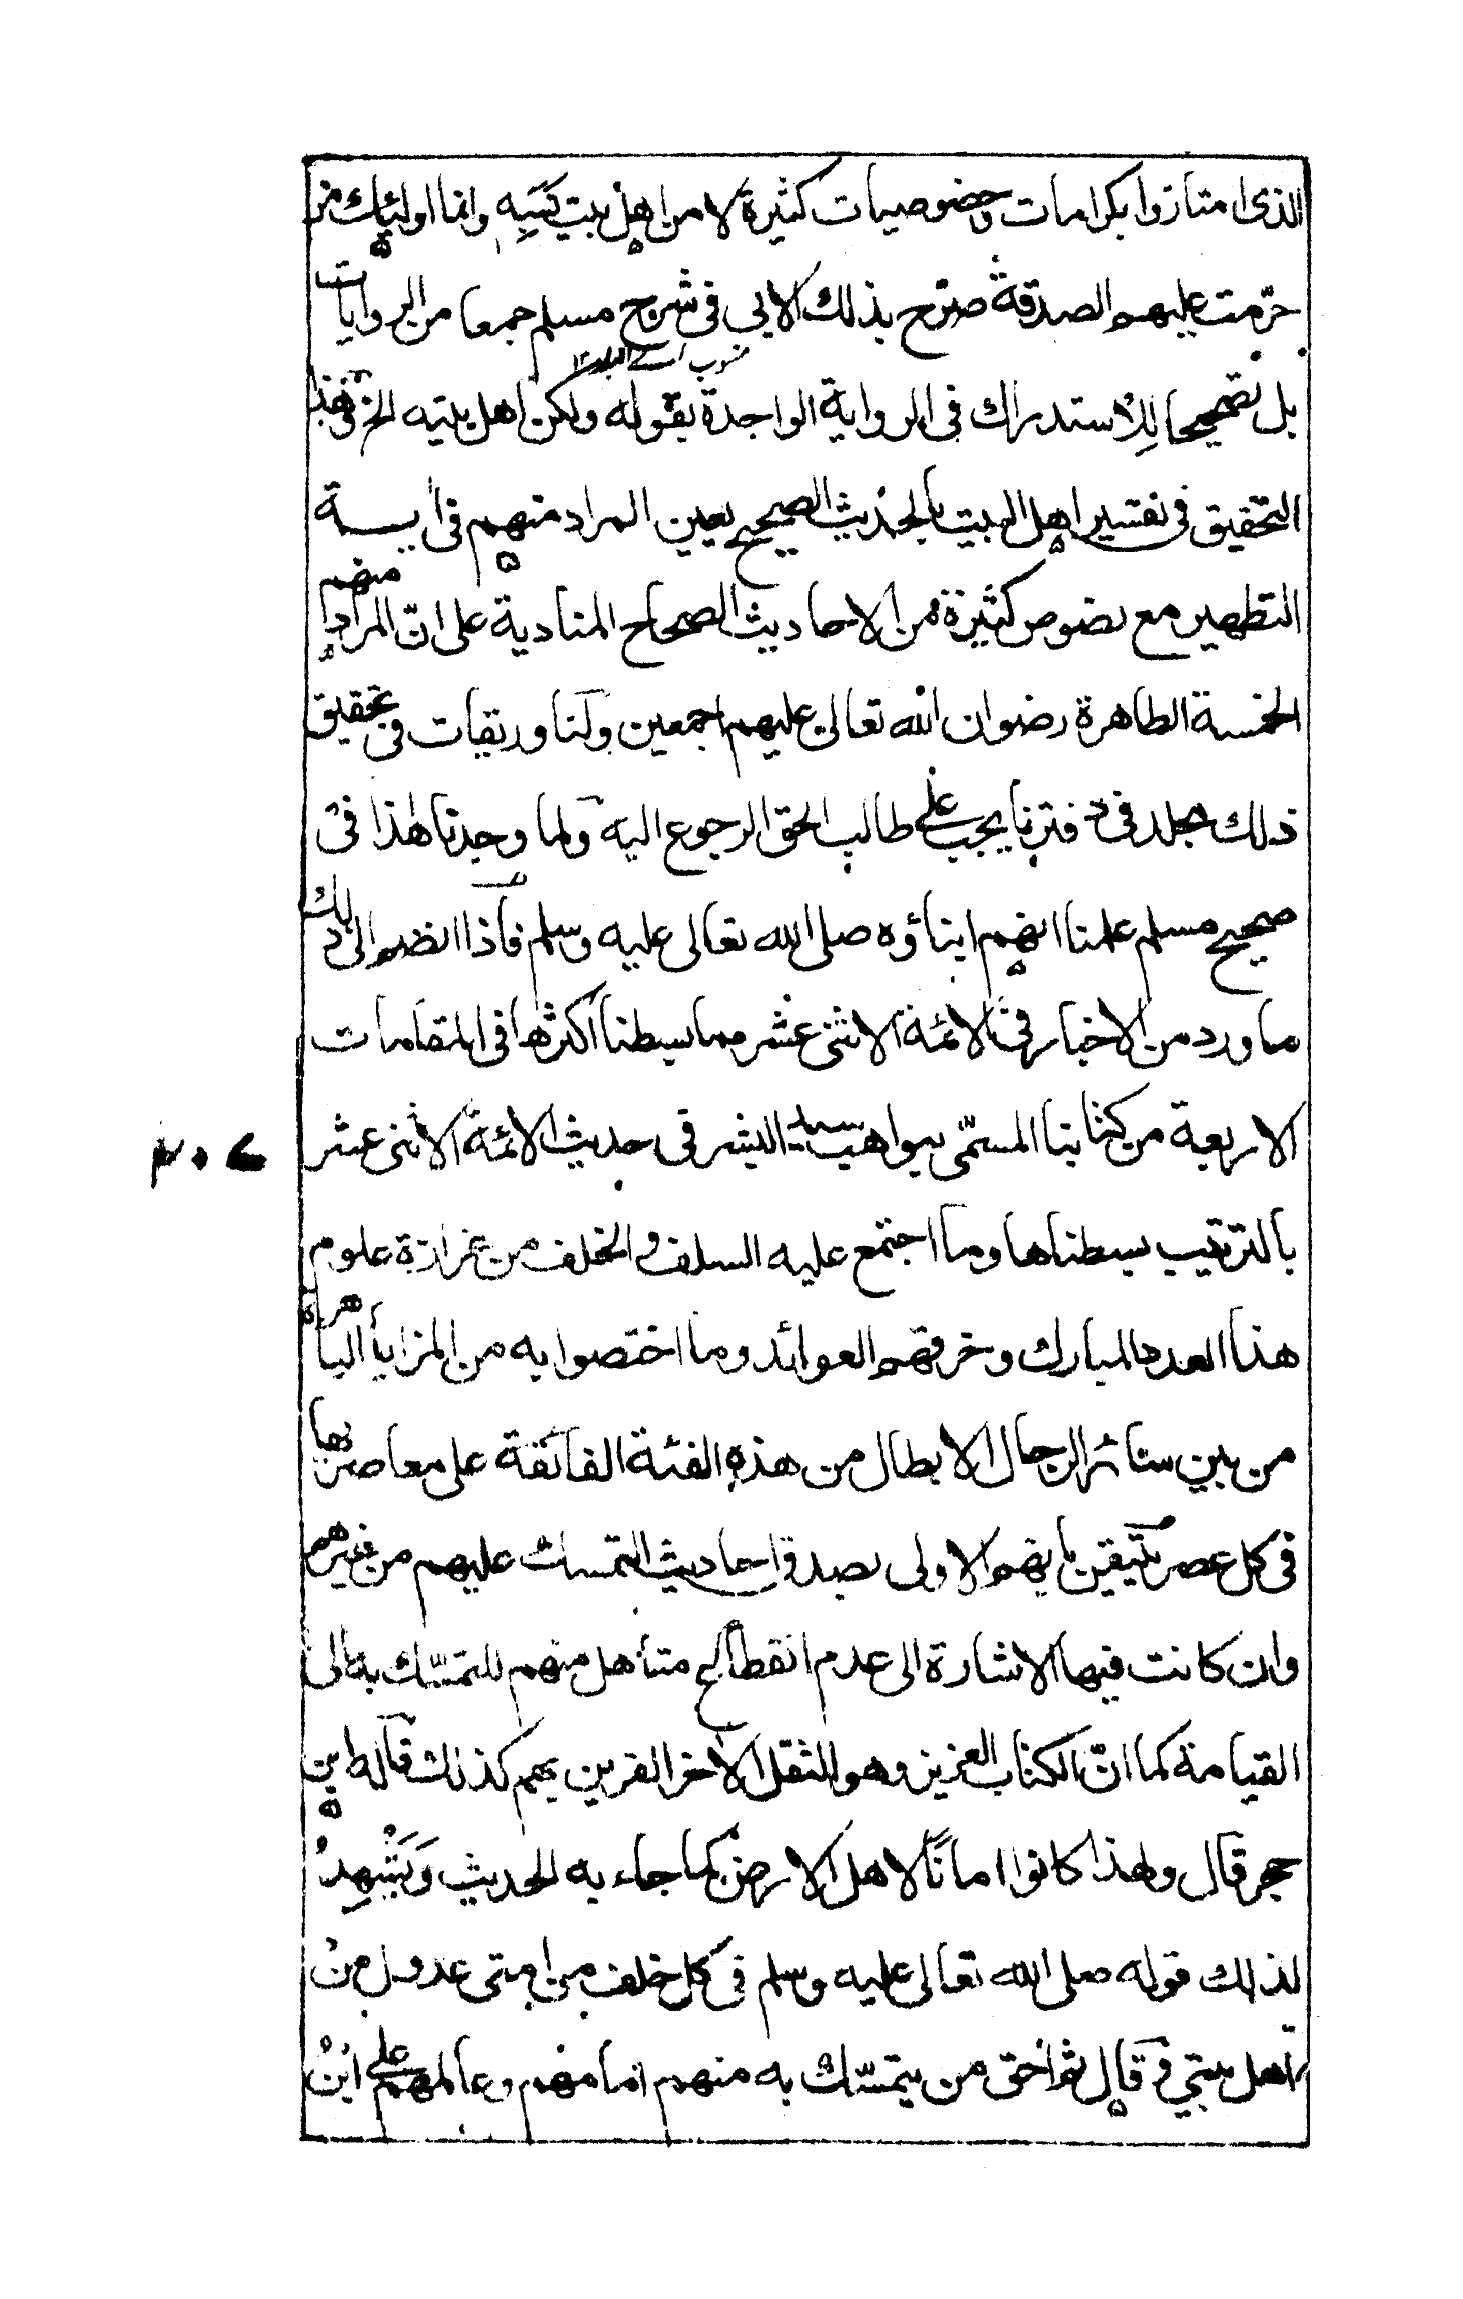 الذى امتازوا بكرامات وخصوصيات كثيرة لا من اهل بيت نسبه وانما اولئك من
حرّمت عليهم الصدقة صرّح بذلك الابي فى شرح مسلم جمعا من الروايات
بل تصحيحا للاستدراك فى الرواية الواحدة بقوله ولكن اهل بيته الخ فهذا
التحقيق فى تفسير اهل البيت بالحديث الصحيح يعين المراد منهم فى اية
التطهير مع نصوص كثيرة من الاحاديث الصحاح المنادية على انّ المراد منهم
الخمسة الطاهرة رضوان الله تعالى عليهم اجمعين ولنا وريقات فى تحقيق
ذلك مجلد فى دفترنا يجب على طالب الحق الرجوع اليه ولما وجدنا هذا فى
صحيح مسلم علمنا انهم ابناؤه صلى الله تعالى عليه وسلم فاذا انضم الى ذلك
ما ورد من الاخبار فى الائمة الاثنى عشر مما بسطنا اكثرها فى المقامات
الاربعة من كتابنا المسمّى بمواهب سيد البشر فى حديث الائمة الاثنى عشر
بالترتيب بسطناها وما اجتمع عليه السلف والخلف من غزارة علوم
هذا العدد المبارك وخرقهم العوائد وما اختصوا به من المزايا الباهرة
من بين سائر الرجال الابطال من هذه الفئة الفائقة على معاصريها
فى كل عصر تيقن بانهم الاولى بصدق احاديث التمسك عليهم من غيرهم
وان كانت فيها الاشارة الى عدم انقطاع متأهل منهم للتمسّك به الى
القيامة كما انّ الكتاب العزيز وهو الثقل الاخر القرين بهم كذلك قاله ابن
حجر قال ولهذا كانوا امانًا لاهل الارض كما جاء به الحديث وَيَشْهِدُ
لذلك قوله صلى الله تعالى عليه وسلم فى كل خلف من امتى عدول من
اهل بيتي قال ثم احق من يتمسّك به منهم امامهم وعالمهم على ابن